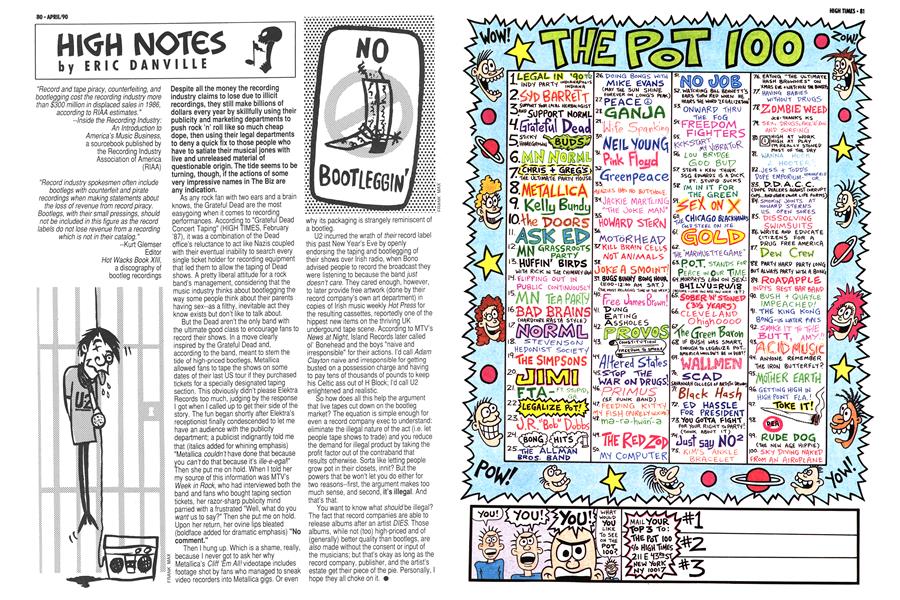 80 • APRIL/90
HIGH NOTES
by ERIC DANVILLE
"Record and tape piracy, counterfeiting, and
bootlegging cost the recording industry more
than $300 million in displaced sales in 1986,
according to RIAA estimates."
—Inside the Recording Industry:
An Introduction to
America's Music Business,
a sourcebook published by
the Recording Industry
Association of America
(RIAA)
"Record industry spokesmen often include
bootlegs with counterfeit and pirate
recordings when making statements about
the loss of revenue from record piracy.
Bootlegs, with their small pressings, should
not be included in this figure as the record
labels do not lose revenue from a recording
which is not in their catalog."
—Kurt Glemser
Editor
Hot Wacks Book XIII,
a discography of
bootleg recordings
U2
FRANK MAX
Despite all the money the recording
industry claims to lose due to illicit
recordings, they still make billions of
dollars every year by skillfully using their
publicity and marketing departments to
push rock 'n' roll like so much cheap
dope, then using their legal departments
to deny a quick fix to those people who
have to satiate their musical jones with
live and unreleased material of
questionable origin. The tide seems to be
turning, though, if the actions of some
very impressive names in The Biz are
any indication.
As any rock fan with two ears and a brain
knows, the Grateful Dead are the most
easygoing when it comes to recording
performances. According to "Grateful Dead
Concert Taping" (HIGH TIMES, February
'87), it was a combination of the Dead
office's reluctance to act like Nazis coupled
with their eventual inability to search every
single ticket holder for recording equipment
that led them to allow the taping of Dead
shows. A pretty liberal attitude for a rock
band's management, considering that the
music industry thinks about bootlegging the
way some people think about their parents
having sex–as a filthy, inevitable act they
know exists but don't like to talk about.
But the Dead aren't the only band with
the ultimate good class to encourage fans to
record their shows. In a move clearly
inspired by the Grateful Dead and,
according to the band, meant to stem the
tide of high-priced bootlegs, Metallica
allowed fans to tape the shows on some
dates of their last US tour if they purchased
tickets for a specially designated taping
section. This obviously didn't please Elektra
Records too much, judging by the response
I got when I called up to get their side of the
story. The fun began shortly after Elektra's
receptionist finally condescended to let me
have an audience with the publicity
department; a publicist indignantly told me
that (italics added for whining emphasis)
"Metallica couldn't have done that because
you can't do that because it's ille-e-egal!"
Then she put me on hold. When I told her
my source of this information was MTV's
Week in Rock, who had interviewed both the
band and fans who bought taping section
tickets, her razor-sharp publicity mind
parried with a frustrated "Well, what do you
want us to say?" Then she put me on hold.
Upon her return, her ovine lips bleated
(boldface added for dramatic emphasis) "No
comment."
Then I hung up. Which is a shame, really,
because I never got to ask her why
Metallica's Cliff 'Em All! videotape includes
footage shot by fans who managed to sneak
video recorders into Metallica gigs. Or even
NO
BOOTLEGGIN'
FRANK MAX
why its packaging is strangely reminiscent of
a bootleg.
U2 incurred the wrath of their record label
this past New Year's Eve by openly
endorsing the taping and bootlegging of
their shows over Irish radio, when Bono
advised people to record the broadcast they
were listening to because the band just
doesn't care. They cared enough, however,
to later provide free artwork (done by their
record company's own art department) in
copies of Irish music weekly Hot Press for
the resulting cassettes, reportedly one of the
hippest new items on the thriving UK
underground tape scene. According to MTV's
News at Night, Island Records later called
ol' Bonehead and the boys "naive and
irresponsible" for their actions. I'd call Adam
Clayton naive and irresponsible for getting
busted on a possession charge and having
to pay tens of thousands of pounds to keep
his Celtic ass out of H Block; I'd call U2
enlightened and realistic.
So how does all this help the argument
that live tapes cut down on the bootleg
market? The equation is simple enough for
even a record company exec to understand:
eliminate the illegal nature of the act (i.e. let
people tape shows to trade) and you reduce
the demand for illegal product by taking the
profit factor out of the contraband that
results otherwise. Sorta like letting people
grow pot in their closets, innit? But the
powers that be won't let you do either for
two reasons–first, the argument makes too
much sense, and second, it's illegal. And
that's that.
You want to know what should be illegal?
The fact that record companies are able to
release albums after an artist DIES. Those
albums, while not (too) high-priced and of
(generally) better quality than bootlegs, are
also made without the consent or input of
the musicians; but that's okay as long as the
record company, publisher, and the artist's
estate get their piece of the pie. Personally, I
hope they all choke on it. ●
HIGH TIMES • 81
WOW!
THE POT 100
ZOW!
1. LEGAL IN '90!
2. SYD BARRETT
3. SUPPORT NORML
4. Grateful Dead
5. STICKY BUDS
6. MN NORML
7. CHRIS + GREG'S
THE ULTIMATE PARTY HOUSE
8. METALLICA
9. Kelly Bundy
10. the DOORS
11. ASK ED
12. MN GRASSROOTS
PARTY
13. HUFFIN' BIRDS
14. FLIPPING OUT IN
PUBLIC CONTINUOUSLY
15. MN TEA PARTY
16. BAD BRAINS
17. NORML
18. STEVENSON
HEDONIST SOCIETY
19. THE SIMPSONS
20. JIMI
21. FTA
22. LEGALIZE POT!
23. J.R. "Bob" Dobbs
24. BONG HITS
25. THE ALLMAN
BROS. BAND
26. DOING BONGS WITH
MIKE EVANS
27. PEACE
28. GANJA
29. Wife Spanking
30. NEIL YOUNG
31. Pink Floyd
32. Greenpeace
34. JACKIE MARTLING
"THE JOKE MAN"
35. HOWARD STERN
36. MOTORHEAD
37. KILL BRAIN CELLS
NOT ANIMALS
38. JOKE A SMOINT!
39. BUGS BUNNY BONG HOUR
40. Free James Down!
41. DUNG
EATING
ASSHOLES
42. PROVOS
44. Altered States
45. STOP THE
WAR ON DRUGS!
46. PRIMUS
47. FEEDING KITTY
48. ma-ra-hwan-a
49. THE RED ZOD
50. MY COMPUTER
51. NO JOB
53. ONWARD THRU
THE FOG
54. FREEDOM
FIGHTERS
55. KICKSTART
MY VIBRATOR
56. LOU BRIDGE
GOO BUD
58. I'M IN IT FOR
THE GREEN
59. SEX ON X
60. CHICAGO BLACKHAWKS
61. GOLD
62. THE MARIJUETTE GAME
63. P.O.T. STANDS FOR
PEACE IN OUR TIME
65. SOBER 'N' STONED
66. CLEVELAND
67. The Green Baron
69. WALLMEN
70. SCAD
71. Black Hash
72. ED HASSLE
FOR PRESIDENT
73. YOU GOTTA FIGHT
FOR YOUR RIGHT TO PARTY!
74. Just say NO2
75. KIM'S ANKLE
BRACELET
77. HAVING BABIES
WITHOUT DRUGS
78. ZOMBIE WEED
79. SEX, DRUGS, ACID RAIN
AND SURFING
83. D.D.A.C.C.
85. DISSOLVING
SWIMSUITS
86. WRITE AND EDUCATE
CITIZENS FOR A
DRUG FREE AMERICA
87. Dew Crew
88. PARTY HARD PARTY LONG
BUT ALWAYS PARTY WITH A BONG
89. ROADAPPLE
90. BUSH + QUAYLE
IMPEACHED!
91. THE KING KONG
92. SMOKE IT TO THE
BUTT, AMY!!
93. ACID MUSIC
94. ANYONE REMEMBER
THE IRON BUTTERFLY?
95. MOTHER EARTH
96. GETTING HIGH IN
HIGH POINT FLA!
97. TOKE IT!
DEA
98. RUDE DOG
99. (THE NEW AGE HIPPIE)
100. SKY DIVING NAKED
FROM AN AIRPLANE
POW!
YOW!
YOU!
YOU!
YOU!
WHAT
WOULD
YOU
LIKE
TO SEE
ON THE
POT
100?
MAIL YOUR
TOP 3 TO:
THE POT 100
℅ HIGH TIMES
211 E 43RD ST
NEW YORK
NY 10017
#1
#2
#3